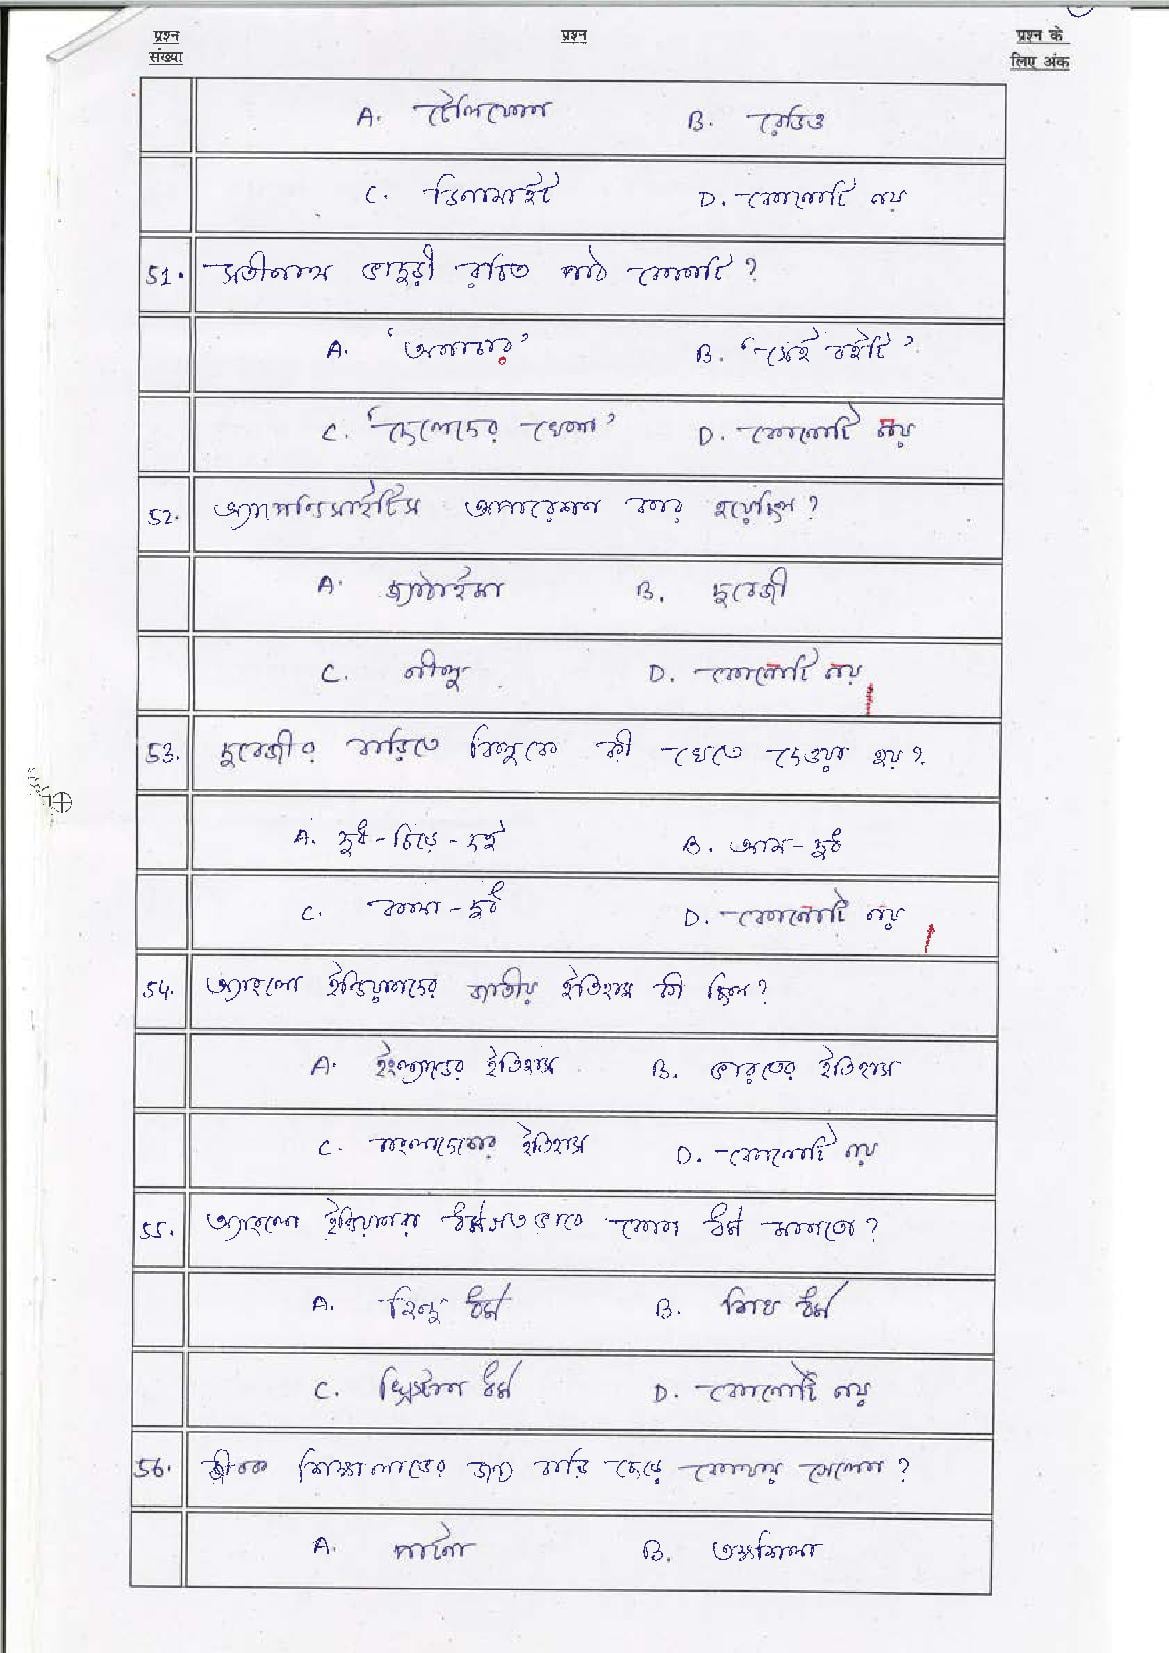 प्रश्न संख्या प्रश्न प्रश्न के लिए अंक
A. টেলিফোন B. রেডিও
C. ডিনামাইট D. কোনোটি নয়
51. সতীনাথ ভাদুড়ী রচিত পাঠ কোনটি?
A. 'অনাচার' B. 'সেই বইটি'
C. 'ছেলেদের খেলা' D. কোনোটি নয়
52. অ্যাপেন্ডিসাইটিস অপারেশন কার হয়েছিল?
A. জ্যাঠাইমা B. দুবেজী
C. নীলু D. কোনোটি নয়
53. দুবেজীর বাড়িতে বিলুকে কী খেতে দেওয়া হয়?
A. দুধ-চিড়ে-দই B. আম-দুধ
C. কলা-দুধ D. কোনোটি নয়
54. অ্যাংলো ইন্ডিয়ানদের জাতীয় ইতিহাস কী ছিল?
A. ইংল্যান্ডের ইতিহাস B. ভারতের ইতিহাস
C. বাংলাদেশের ইতিহাস D. কোনোটি নয়
55. অ্যাংলো ইন্ডিয়ানরা ধর্মগতভাবে কোন ধর্ম মানতো?
A. হিন্দু ধর্ম B. শিখ ধর্ম
C. খ্রিস্টান ধর্ম D. কোনোটি নয়
56. জীবক শিক্ষালাভের জন্য বাড়ি ছেড়ে কোথায় গেলেন?
A. B. তক্ষশিলা